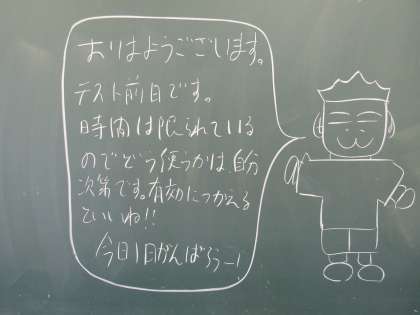 おはようございます。
テスト前日です。
時間は限られている
のでどう使うかは自分
次第です。有効につかえる
といいね!!
今日1日がんばろうー!